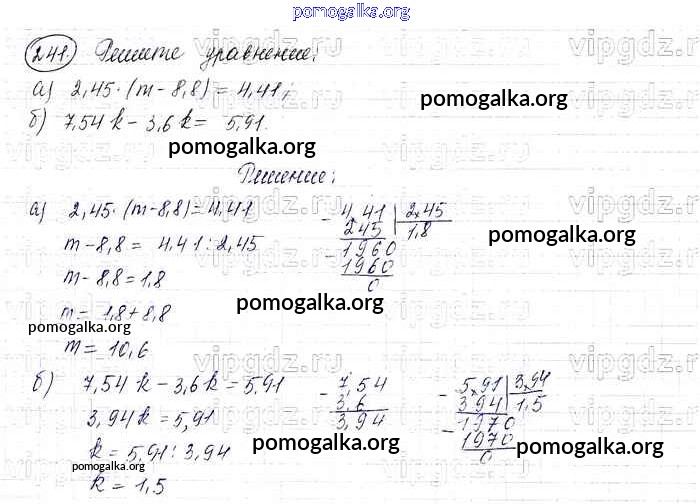 pomogalka.org
241. Решите уравнение:
а) 2,45·(m-8,8)=4,41;
pomogalka.org
б) 7,54k-3,6k= 5,91.
pomogalka.org
Решение:
а) 2,45·(m-8,8)=4,41
m-8,8= 4,41:2,45
m-8,8=1,8
m= 1,8+8,8
m= 10,6
- 4,41 | 2,45
245 | 1,8
- 1960
1960
0
pomogalka.org
pomogalka.org
pomogalka.org
б) 7,54k-3,6k=5,91
3,94k=5,91
k= 5,91:3,94
k= 1,5
- 7,54
3,6
3,94
- 5,91 | 3,94
3,94 | 1,5
- 1970
1970
0
pomogalka.org
pomogalka.org
pomogalka.org
vipgdz.ru
vipgdz.ru
vipgdz.ru